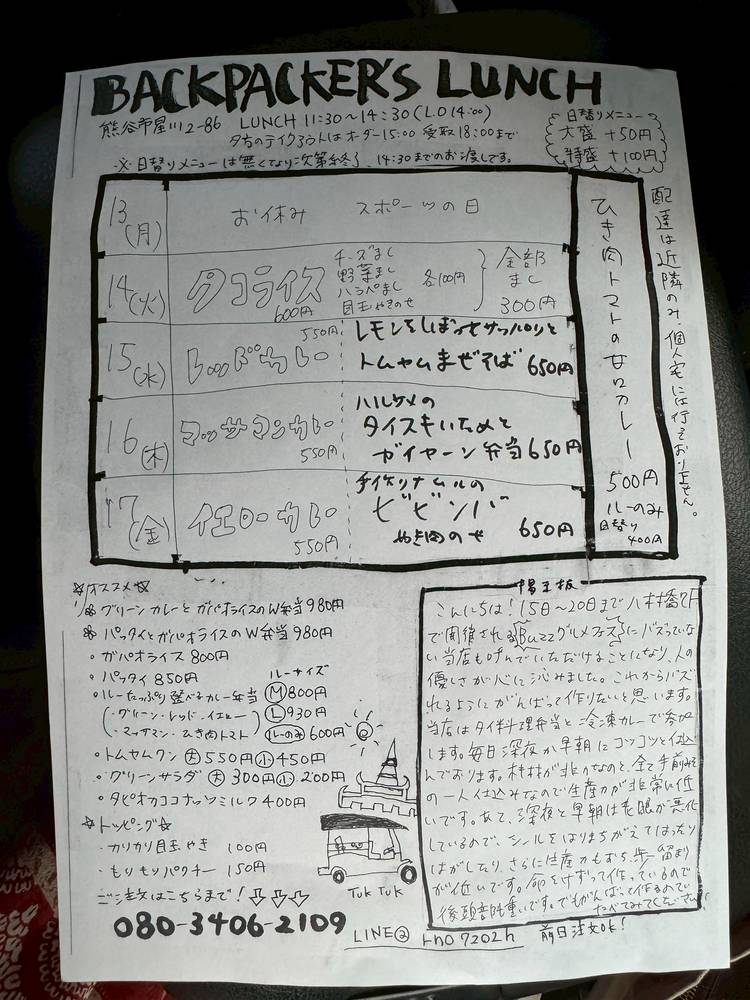 BACKPACKER'S LUNCH
熊谷市星川2-86 LUNCH 11:30〜14:30(L.O 14:00)
夕方のテイクアウトはオーダー15:00 受取18:00まで
※日替りメニューは無くなり次第終了、14:30までのお渡しです。
日替りメニュー
大盛 +50円
特盛 +100円
13(月) お休み スポーツの日
14(火) タコライス 600円
チーズまし
野菜まし
ハラペまし
目玉やきのせ
各100円
全部まし 300円
15(水) レッドカレー 550円
レモンをしぼってサッパリと
トムヤムまぜそば 650円
16(木) マッサマンカレー 550円
ハルサメの
タイスキいためと
ガイヤーン弁当 650円
17(金) イエローカレー 550円
手作りナムルの
ビビンバ
やき肉のせ 650円
ひき肉トマトの甘口カレー
500円
ルーのみ
日替り
400円
配達は近隣のみ、個人宅には行っておりません。
☆オススメ☆
グリーンカレーとガパオライスのW弁当 980円
パッタイとガパオライスのW弁当 980円
・ガパオライス 800円
・パッタイ 850円
・ルーたっぷり選べるカレー弁当
(・グリーン・レッド・イエロー
・マッサマン・ひき肉トマト)
ルーサイズ
M 800円
L 930円
ルーのみ 600円
・トムヤムクン 大 550円 小 450円
・グリーンサラダ 大 300円 小 200円
・タピオカココナッツミルク 400円
☆トッピング☆
・カリカリ目玉やき 100円
・もりもりパクチー 150円
ご注文はこちらまで!
080-3406-2109
TUK TUK
LINE@ tho7202h 前日注文OK!
掲示板
こんにちは!15日〜20日まで八木橋7F
で開催される《Buzzグルメフェス》にバズっていな
い当店も呼んでいただけることになり、人の
優しさが心に沁みました。これからバズ
れるようにがんばって作りたいと思います。
当店はタイ料理弁当と冷凍カレーで参加
します。毎日深夜か早朝にコツコツと仕込
んでおります。材料が非力なのと、全て手前みそ
の一人仕込みなので生産力が非常に低
いです。あと、深夜と早朝は老眼が悪化
しているので、シールをはりまちがえてはったり
はがしたり、さらに生産力もおち、歩留まり
が低いです。命をけずって作っているので
後頭部も重いです。でもがんばって作るので
たべてみてください